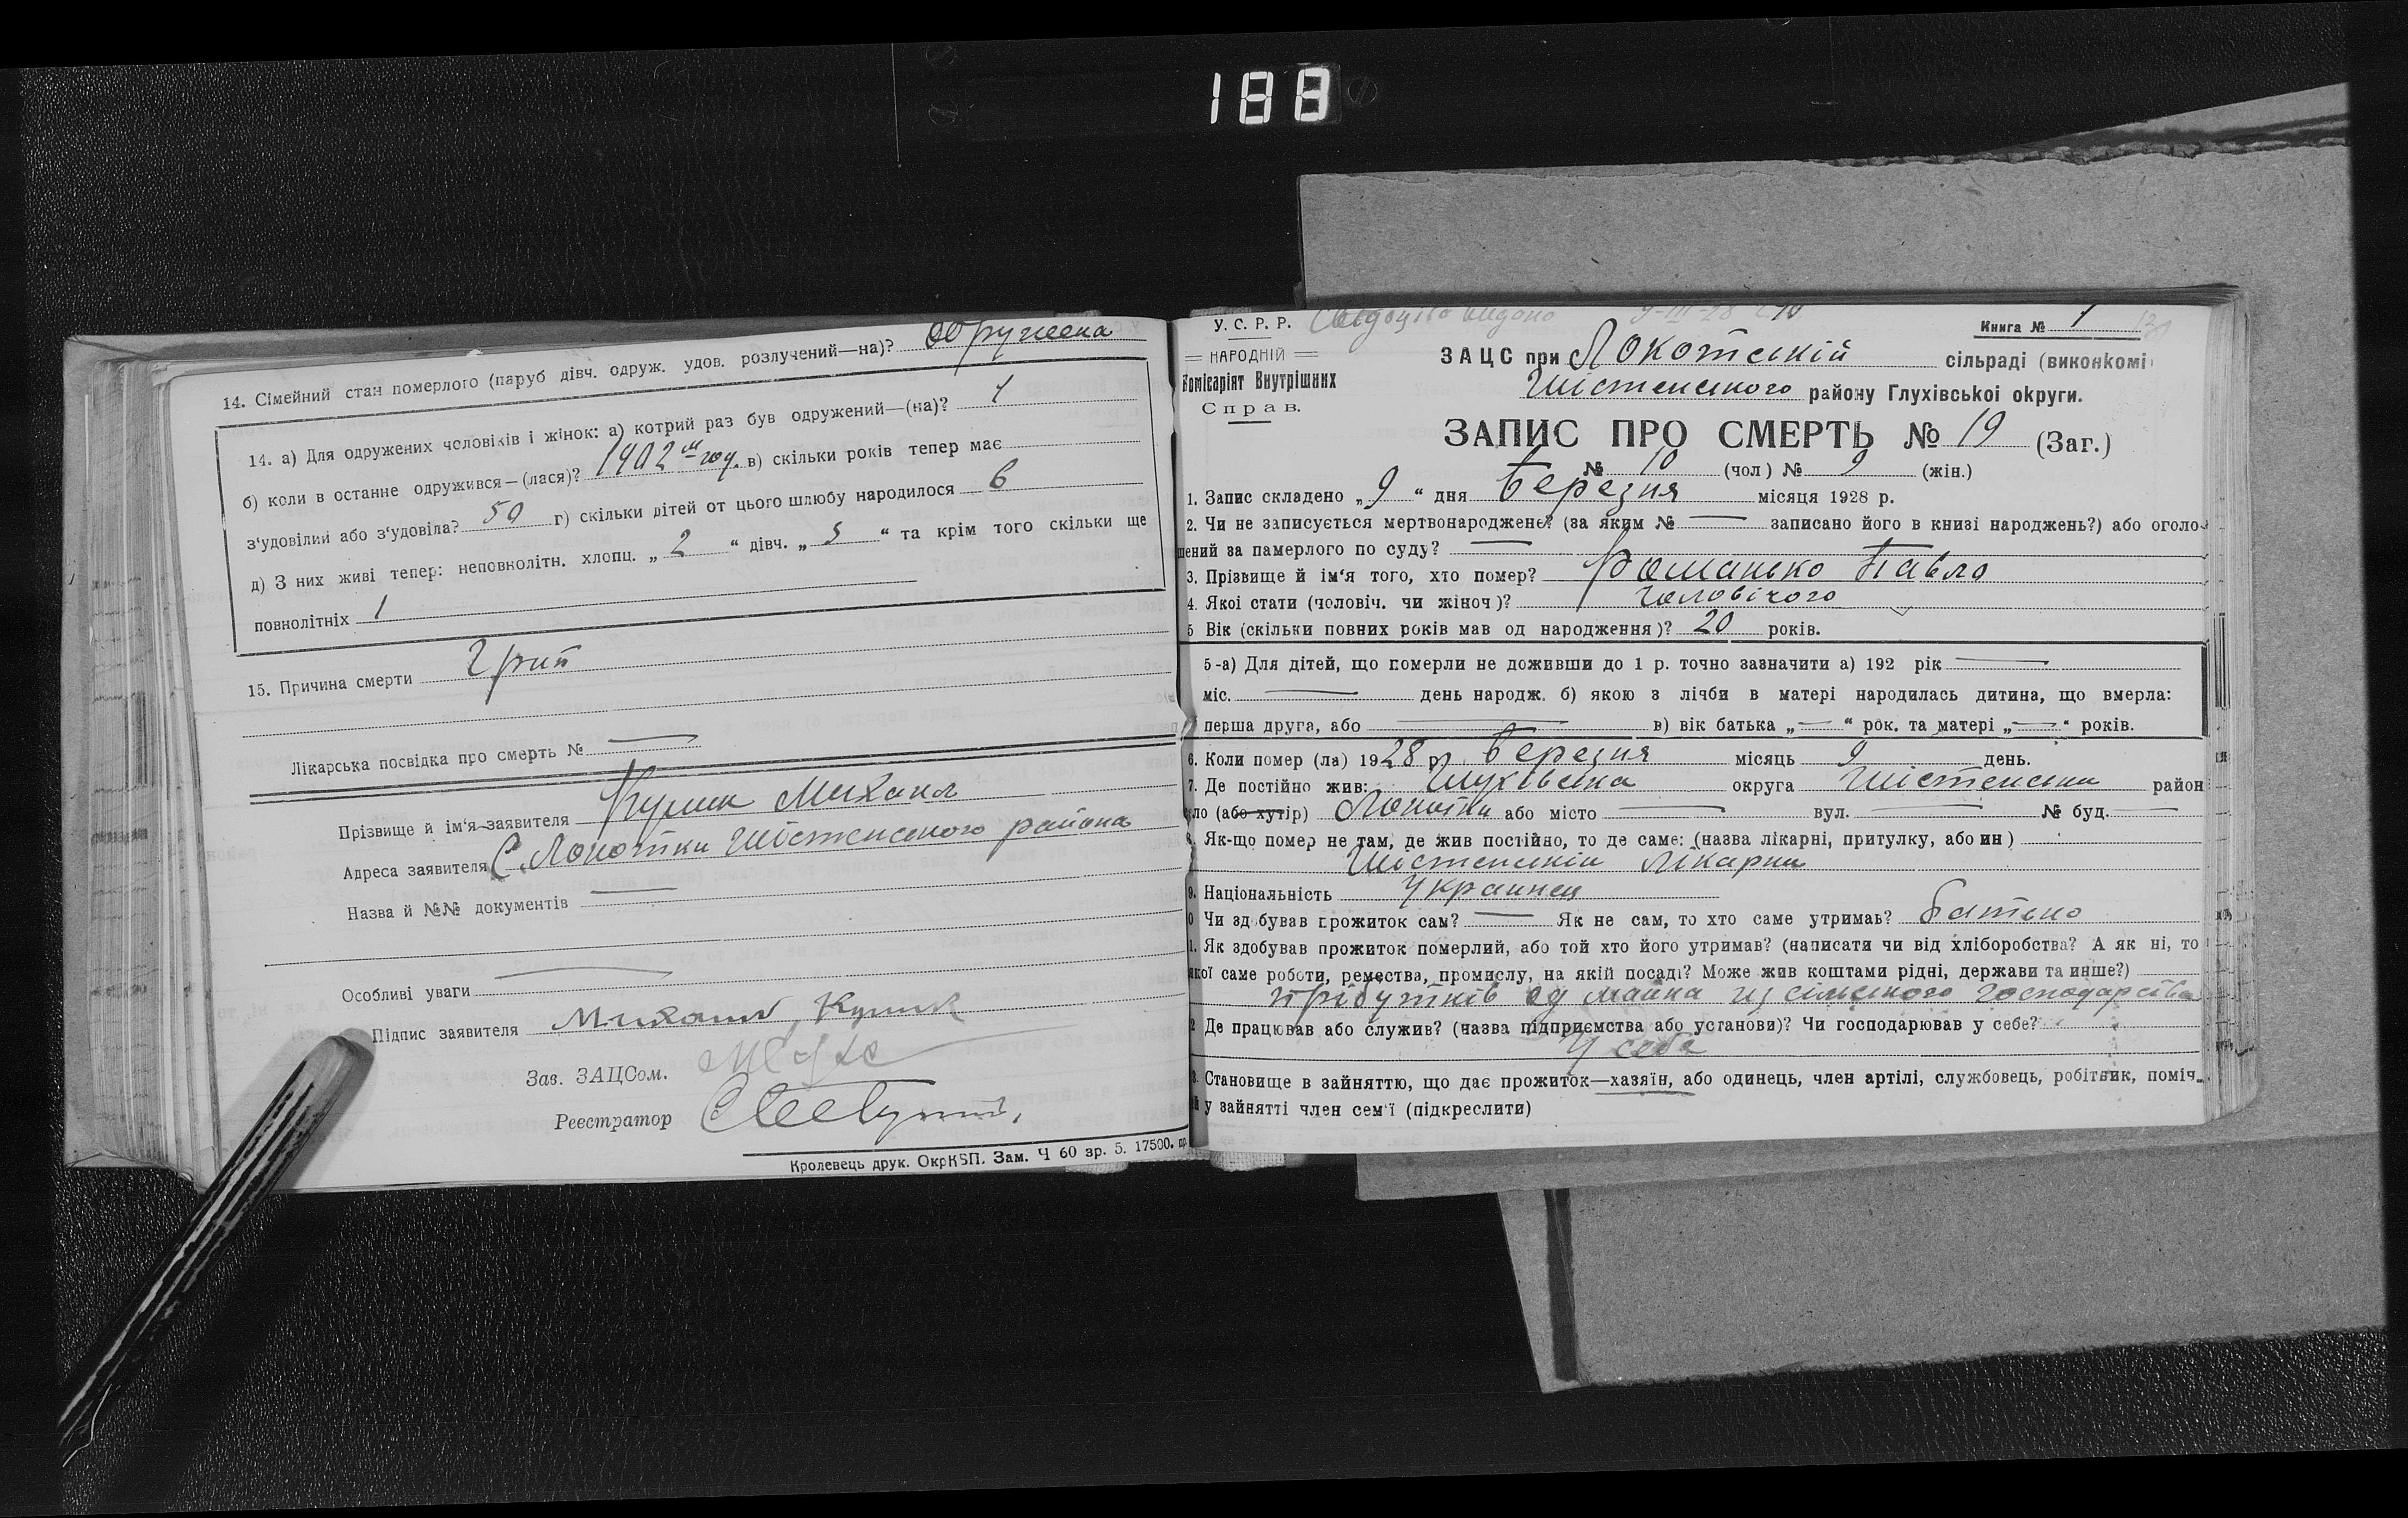 188
14. Сімейний стан померлого (паруб дівч. одруж. удов. розлучений—на)? Одружена
14. а) Для одружених чоловіків і жінок: а) котрий раз був одружений—(на)? 1
б) коли в останнє одружився—(лася)? 1902 м году. в) скільки років тепер має
з'удовілий або з'удовіла? 50 г) скільки дітей от цього шлюбу народилося 6
д) З них живі тепер: неповнолітн. хлопц. „ 2 “ дівч. „ 3 “ та крім того скільки ще
повнолітніх 1
15. Причина смерти грип
Лікарська посвідка про смерть № —
Прізвище й ім'я заявителя Кулик Михаил
Адреса заявителя С. Локотки Шістенського района
Назва й №№ документів —
Особливі уваги —
Підпис заявителя Михаил Кулик
Зав. ЗАЦСом.
Реєстратор
Кролевець друк. ОкрКВП. Зам. Ч 60 зр. 5. 17500. пр
У. С. Р. Р. Свідоцтво видано 9-III-28
Книга № 1
НАРОДНІЙ
Комісаріят Внутрішних
Справ.
ЗАЦС при Локотській сільраді (виконкомі
Шістенського району Глухівської округи.
ЗАПИС ПРО СМЕРТЬ № 19 (Заг.)
№ 10 (чол) № 9 (жін.)
1. Запис складено „ 9 “ дня Березня місяця 1928 р.
2. Чи не записується мертвонароджене? (за яким № — записано його в книзі народжень?) або оголо-
шений за памерлого по суду? —
3. Прізвище й ім'я того, хто помер? Романько Павло
4. Якої стати (чоловіч. чи жіноч)? Чоловічого
5 Вік (скільки повних років мав од народження)? 20 років.
5-а) Для дітей, що померли не доживши до 1 р. точно зазначити а) 192 рік —
міс. — день народж. б) якою з лічби в матері народилась дитина, що вмерла:
перша друга, або — в) вік батька „ — “ рок. та матері „ — “ років.
6. Коли помер (ла) 1928 р. Березня місяць 9 день.
7. Де постійно жив: Глухівська округа Шістенськи район
ло (або хутір) Локотки або місто — вул. — № буд. —
Як-що помер не там, де жив постійно, то де саме: (назва лікарні, притулку, або ин)
Шістенській Лікарни
9. Національність Украинец
0 Чи здобував прожиток сам? — Як не сам, то хто саме утримав? батько
1. Як здобував прожиток померлий, або той хто його утримав? (написати чи від хліборобства? А як ні, то
якої саме роботи, ремества, промислу, на якій посаді? Може жив коштами рідні, держави та инше?)
прибутків од майна из сільского господарства
2 Де працював або служив? (назва підприємства або установи)? Чи господарював у себе?
У себе
3. Становище в зайняттю, що дає прожиток—хазяїн, або одинець, член артілі, службовець, робітник, поміч-
й у зайнятті член сем'ї (підкреслити)